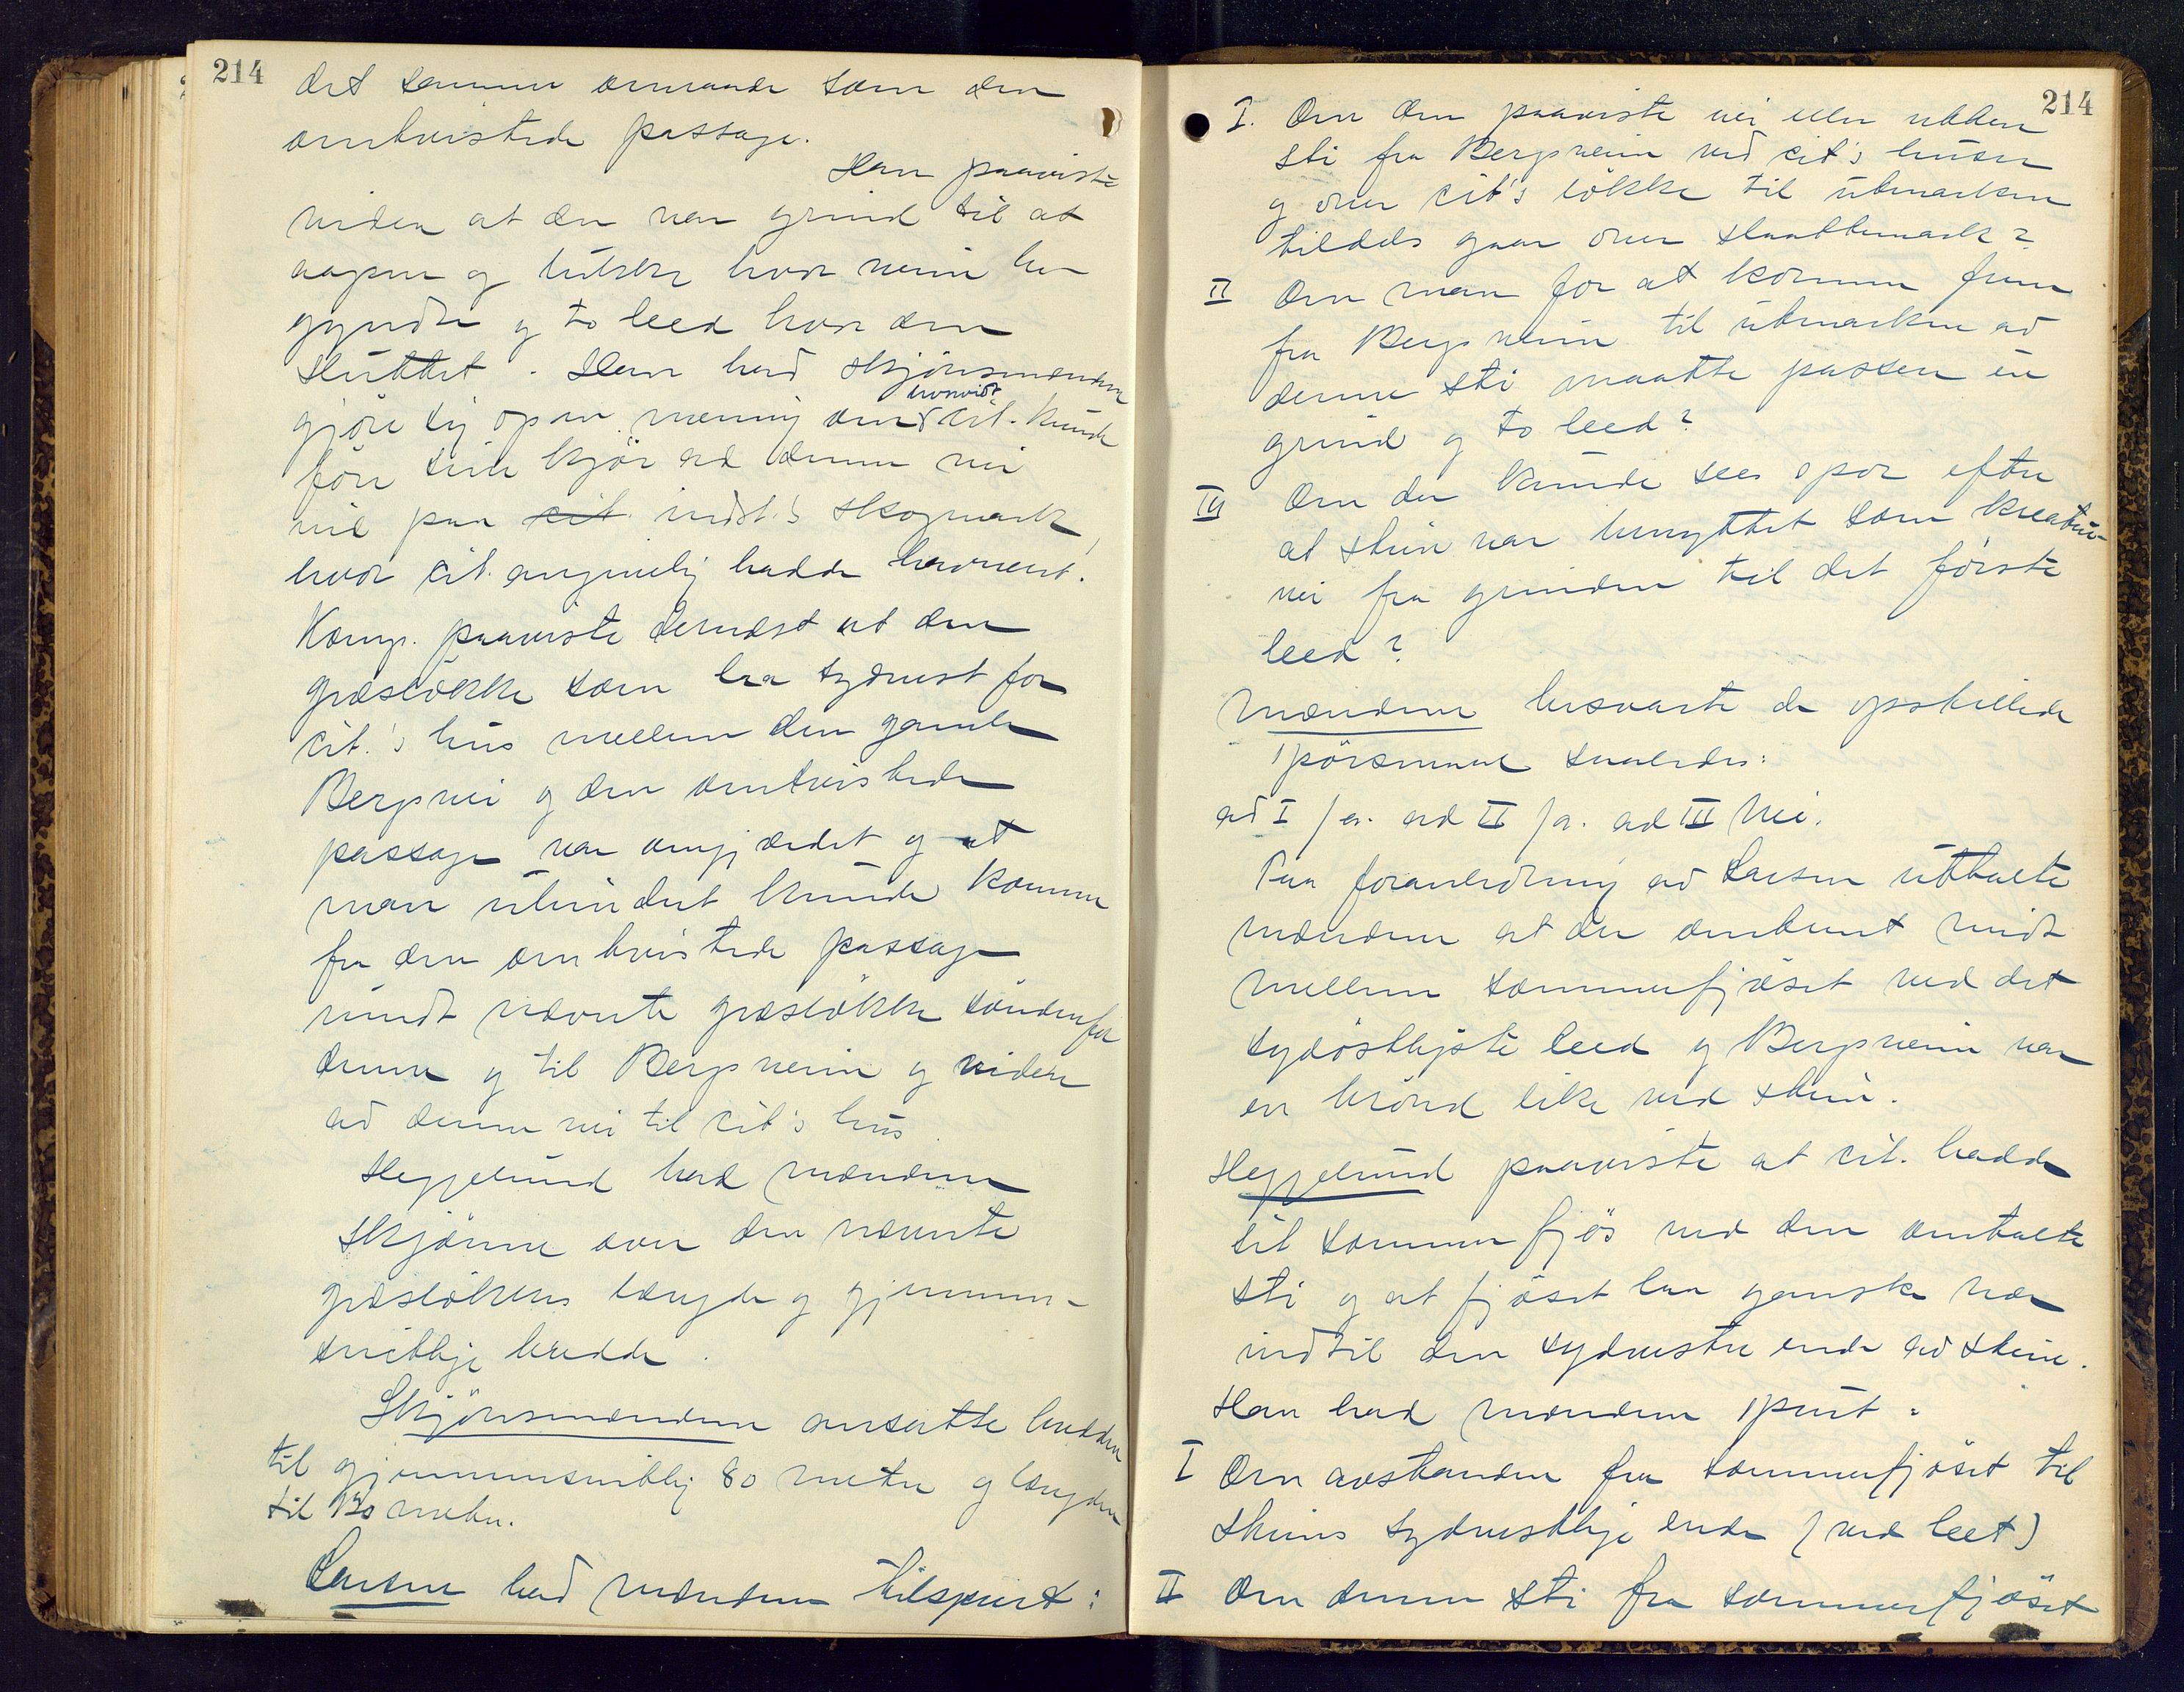 214
det samme omraade som den
omtvistede passage.
Han paaviste
videre at der var grind til at
aapne og lukke hvor veien be-
gyndte og to leed hvor den
sluttet. Han bad skjönsmændene
gjöre sig op en mening om hvorvidt cit. kunde
före sine kjör ad denne vei
ind paa cit. indst.'s skogmark,
hvor cit. angivelig hadde havneret.
Komp. paaviste dernæst at den
græslökke som laa sydvest for
cit.'s hus mellem den gamle
Bergsvei og den omtvistede
passage var omgjærdet og at
man uhindret kunde komme
fra den omtvistede passage
rundt nævnte græslökke söndenfor
denne og til Bergsveien og videre
ad denne vei til cit's hus.
Heggelund bad mændene
skjönne over den nævnte
græslökkes længde og gjennem-
snitlige bredde.
Skjönsmændene ansatte bredden
til gjennemsnitlig 80 meter og længden
til 130 meter.
Larsen bad mændene tilspurt:
214
I. Om den paaviste vei eller rettere
sti fra Bergsveien ved cit's huser
og over cit's lökke til utmarken
tildels gaar over slaattemark?
II Om man for at komme frem
fra Bergsveien til utmarken ad
denne sti maatte passere en
grind og to leed?
III Om der kunde sees spor efter
at stien var benyttet som kreatur-
vei fra grinden til det förste
leed?
Mændene besvarte de opstillede
spörsmaal saaledes:
ad I ja. ad II ja. ad III Nei.
Paa foranledning av Larsen uttalte
mændene at der omtrent midt
mellem sommerfjöset ved det
sydöstligste leed og Bergsveien var
en brönd like ved stien.
Heggelund paaviste at cit. hadde
sit sommerfjös ved den omtalte
sti og at fjöset laa ganske nær
indtil den sydvestre ende av stien.
Han bad mændene spurt:
I Om avstanden fra sommerfjöset til
stiens sydvestlige ende (ved leet)
II Om denne sti fra sommerfjöset